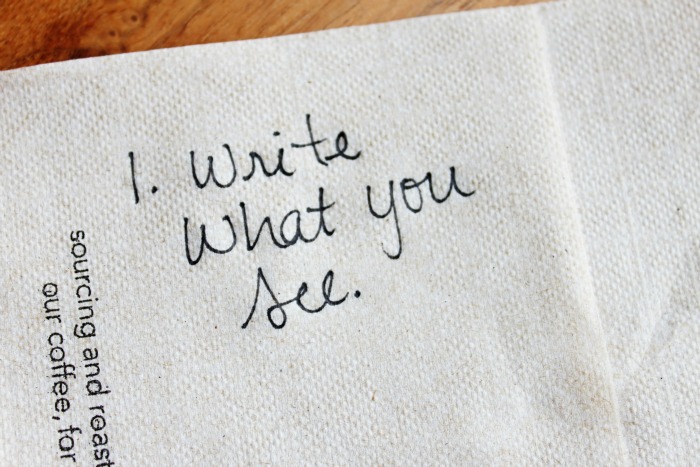 1. Write
What you
See.
sourcing and roast
our coffee, for